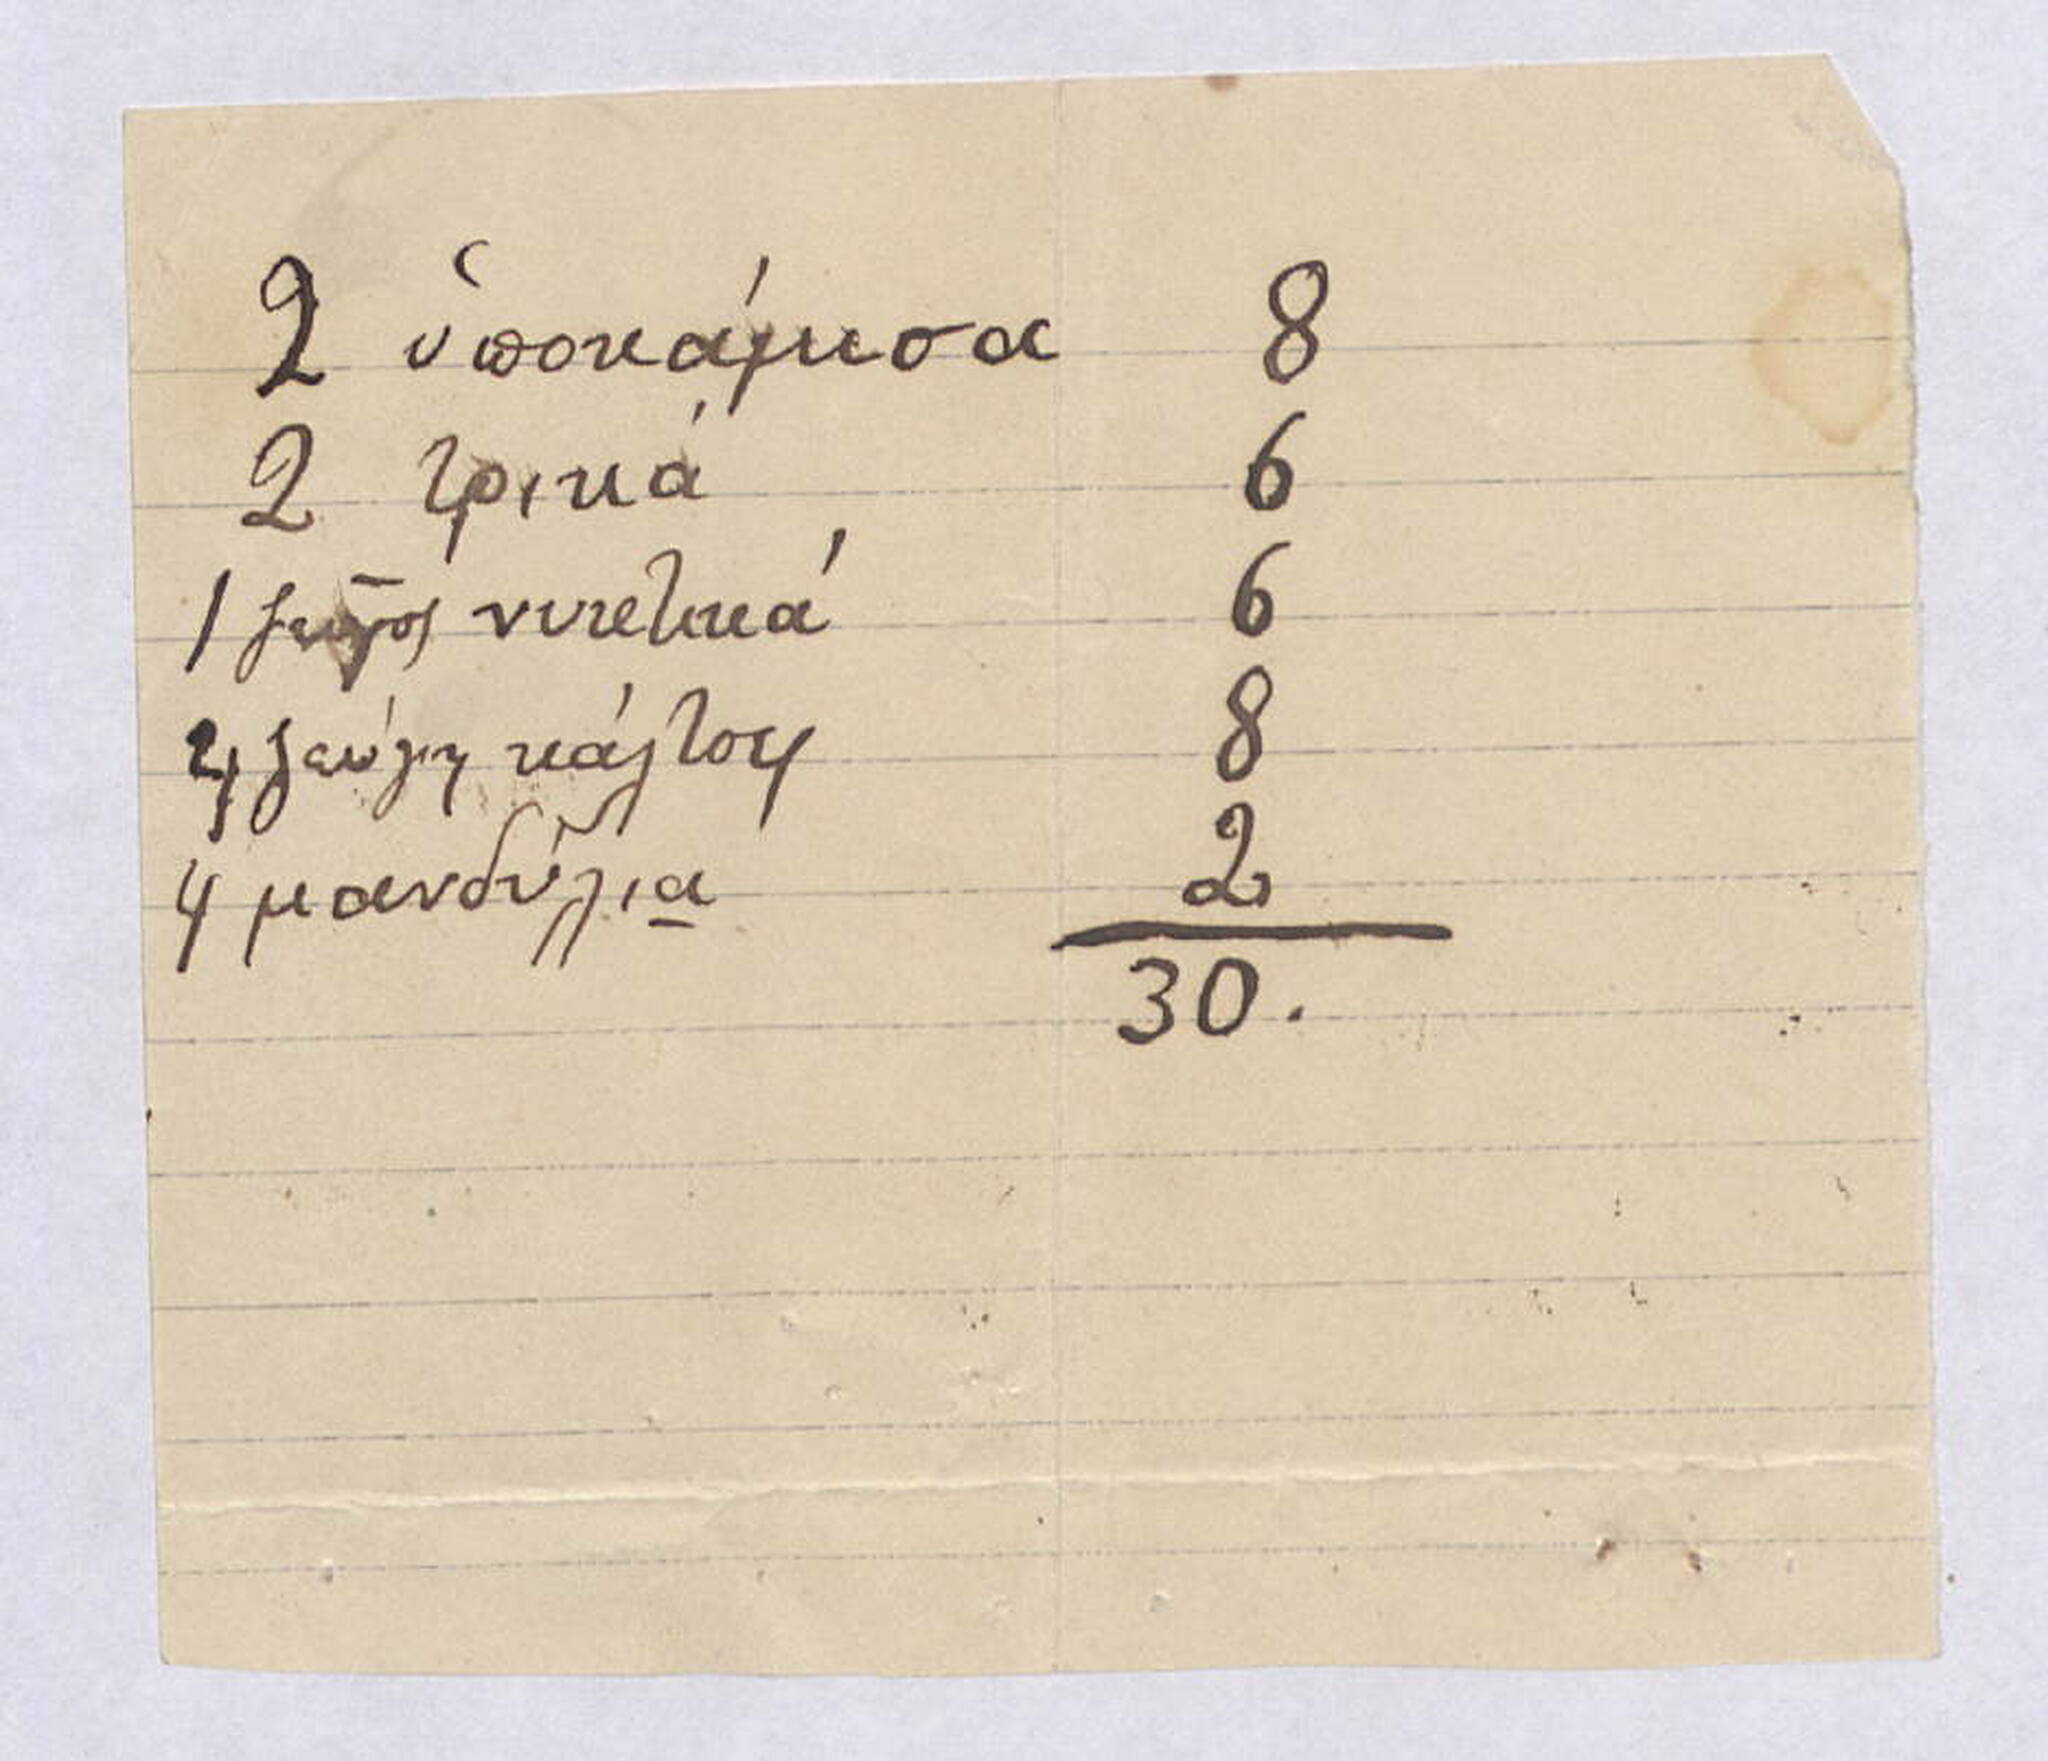 2 ὑποκάμισα 8
2 τρικά 6
1 ζεῦγος νυκτικά 6
4 ζεύγη κάλτσες 8
4 μανδύλια 2
30.